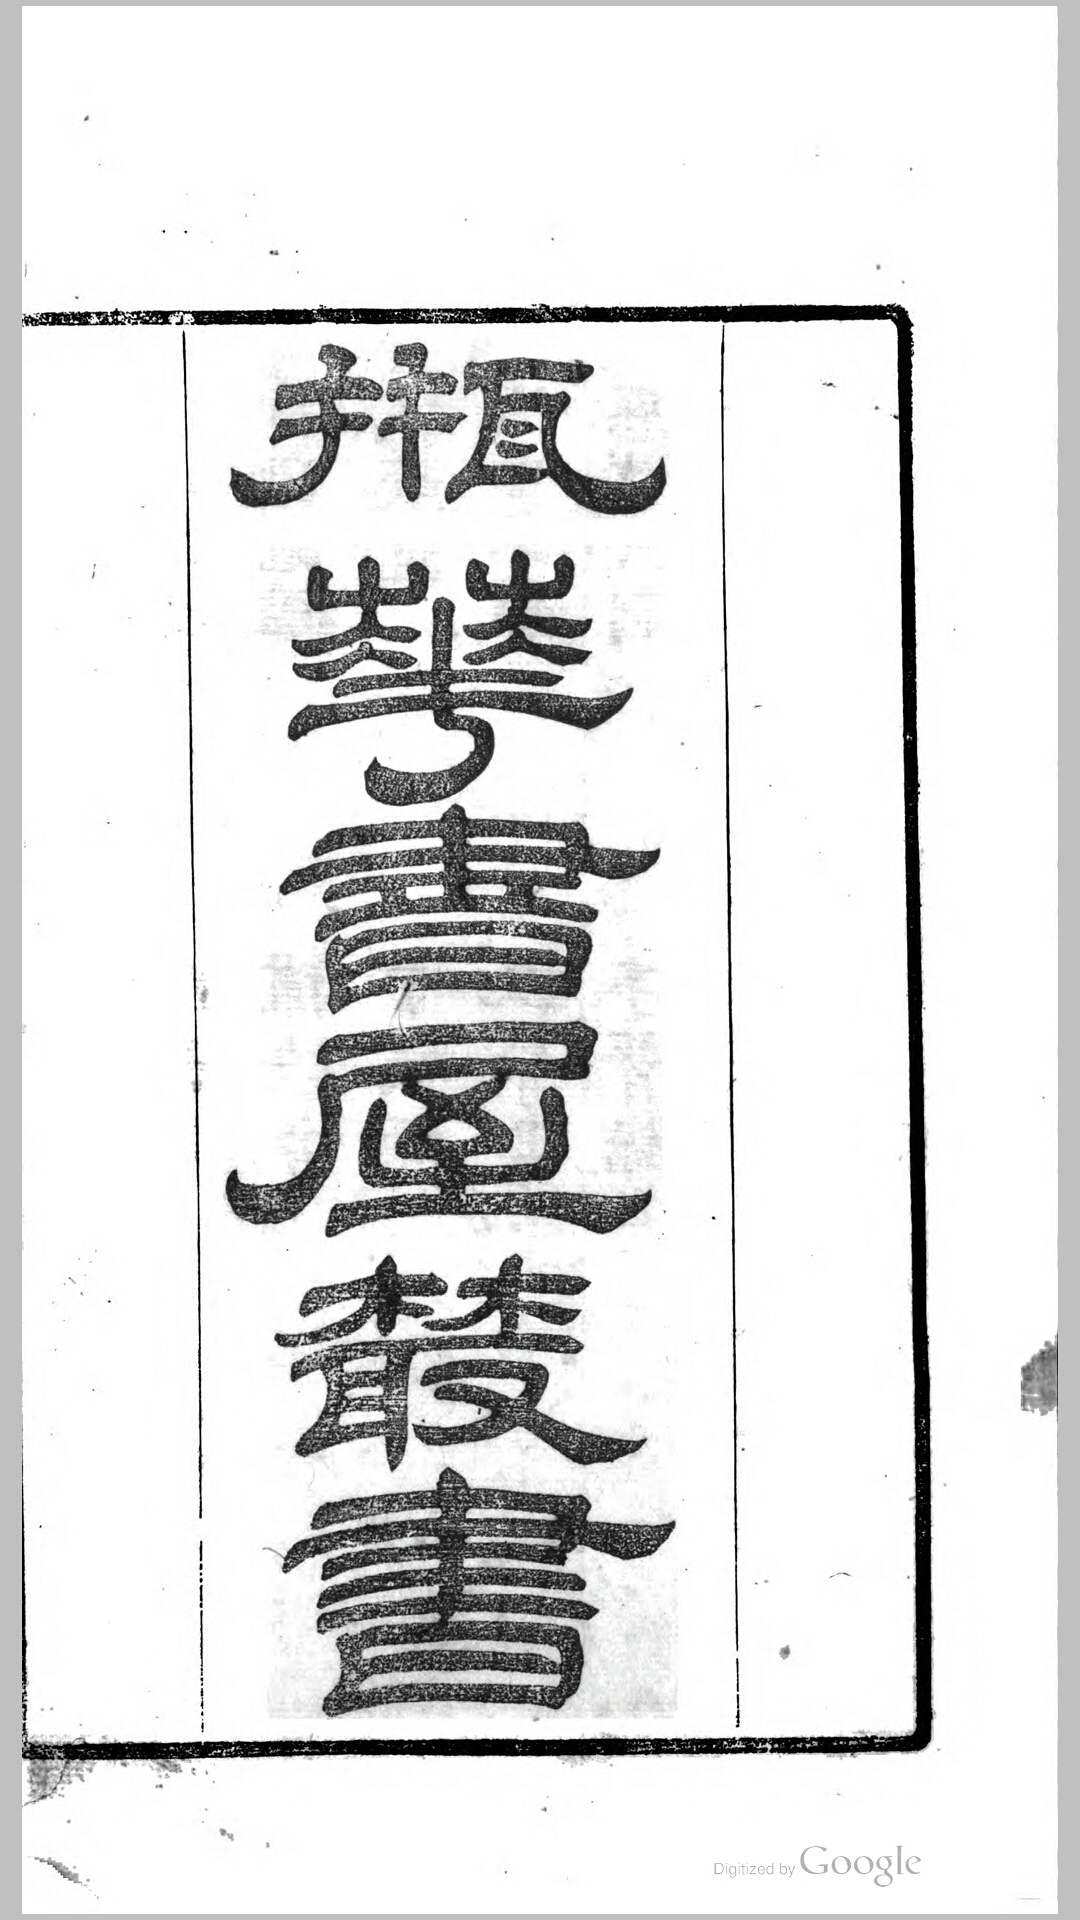 瓶華書屋叢書
Digitized by Google